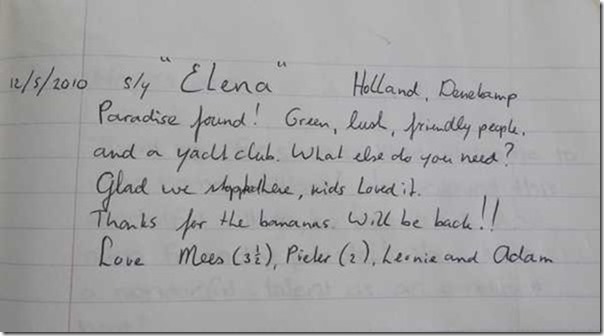 12/5/2010 s/y "Elena" Holland, Denekamp
Paradise found! Green, lush, friendly people,
and a yacht club. What else do you need?
Glad we stopped here, kids loved it.
Thanks for the bananas. Will be back!!
Love Mees (3½), Pieter (2), Leonie and Adam